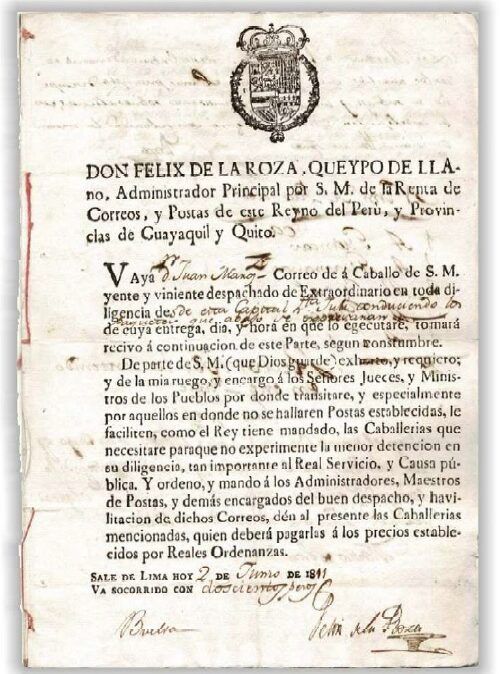 DON FELIX DE LA ROZA, QUEYPO DE LLA-
no, Administrador Principal por S. M. de la Renta de
Correos, y Postas de este Reyno del Perú, y Provin-
cias de Guayaquil y Quito.
VAya Dn. Juan Correo de á Caballo de S. M.
yente y viniente despachado de Extraordinario en toda di-
ligencia desde esta Capital conduciendo los
que abajo se
de cuya entrega, dia, y hora en que lo egecutare, tomará
recivo á continuacion de este Parte, segun constumbre.
De parte de S. M. (que Dios guarde) exhorto, y requiero;
y de la mia ruego, y encargo á los Señores Jueces, y Minist-
ros de los Pueblos por donde transitare, y especialmente
por aquellos en donde no se hallaren Postas establecidas, le
faciliten, como el Rey tiene mandado, las Caballerias que
necesitare paraque no experimente la menor detencion en
su diligencia, tan importante al Real Servicio, y Causa pú-
blica. Y ordeno, y mando á los Administradores, Maestros
de Postas, y demás encargados del buen despacho, y havi-
litacion de dichos Correos, dén al presente las Caballerias
mencionadas, quien deberá pagarlas á los precios estable-
cidos por Reales Ordenanzas.
SALE DE LIMA HOY 2 DE Junio DE 1811
VA SOCORRIDO CON doscientos pesos
Felix de la Roza